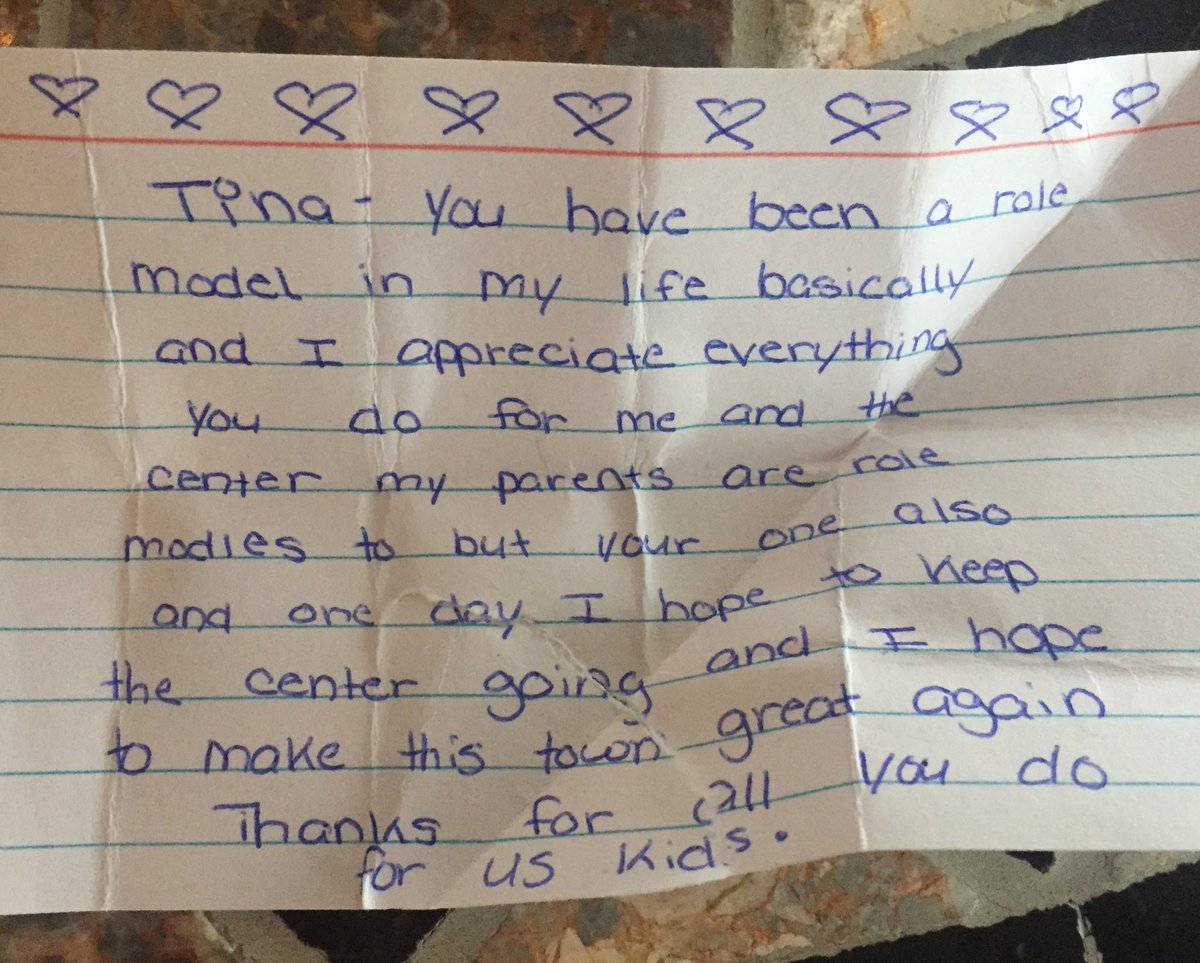 Tina- you have been a role
model in my life basically
and I appreciate everything
you do for me and the
center my parents are role
modles to but your one also
and one day I hope to keep
the center going and I hope
to make this town great again
Thanks for all you do
for us kids.